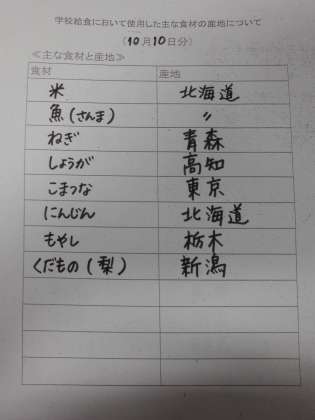 学校給食において使用した主な食材の産地について
（10月10日分）
≪主な食材と産地≫
食材 産地
米 北海道
魚(さんま) 〃
ねぎ 青森
しょうが 高知
こまつな 東京
にんじん 北海道
もやし 栃木
くだもの(梨) 新潟